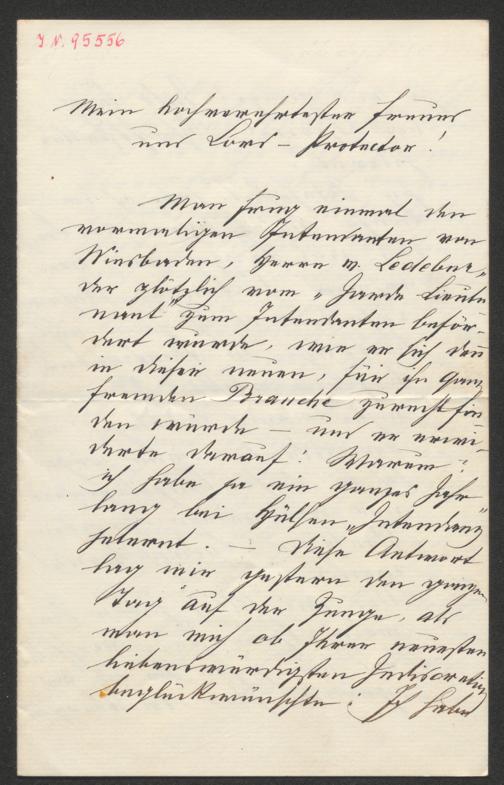 J. N. 95556
Mein hochverehrtester Freund
und Lord-Protector!
Man frug einmal den
vormaligen Intendanten von
Wiesbaden, Herrn v. Ledebur,
der plötzlich vom „Garde Lieute
nant“ zum Intendanten beför-
dert wurde, wie er sich denn
in dieser neuen, für ihn ganz
fremden Branche zurecht fin
den würde – und er erwi-
derte darauf: Warum?
ich habe ja ein ganzes Jahr
lang bei Hülsen „Intendanz“
gelernt. – Diese Antwort
lag mir gestern den ganzen
Tag auf der Zunge, als
man mich ob Ihrer neuesten
liebenswürdigsten Indiscretion
beglückwünschte: Ich habe